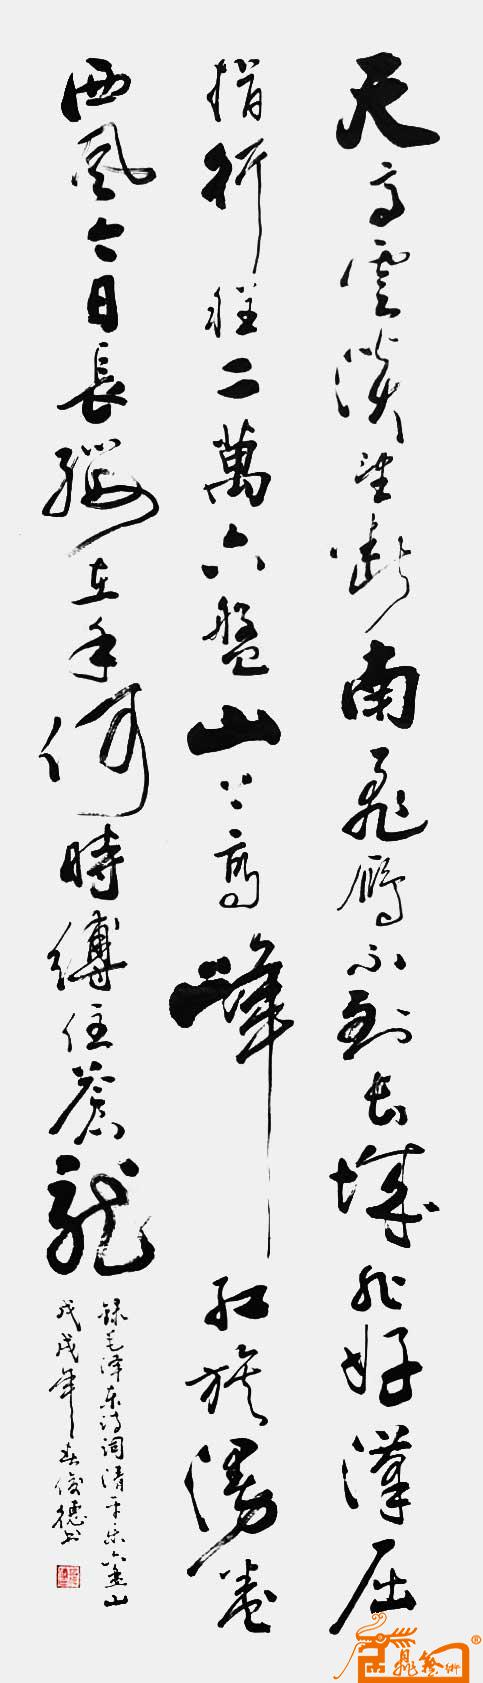 天高雲淡望斷南飛雁不到长城非好漢屈
指行程二萬六盤山上高峰红旗漫卷
西風今日長纓在手何時縛住蒼龍
録毛泽东诗词清平乐六盘山
戊戌年春俊德书